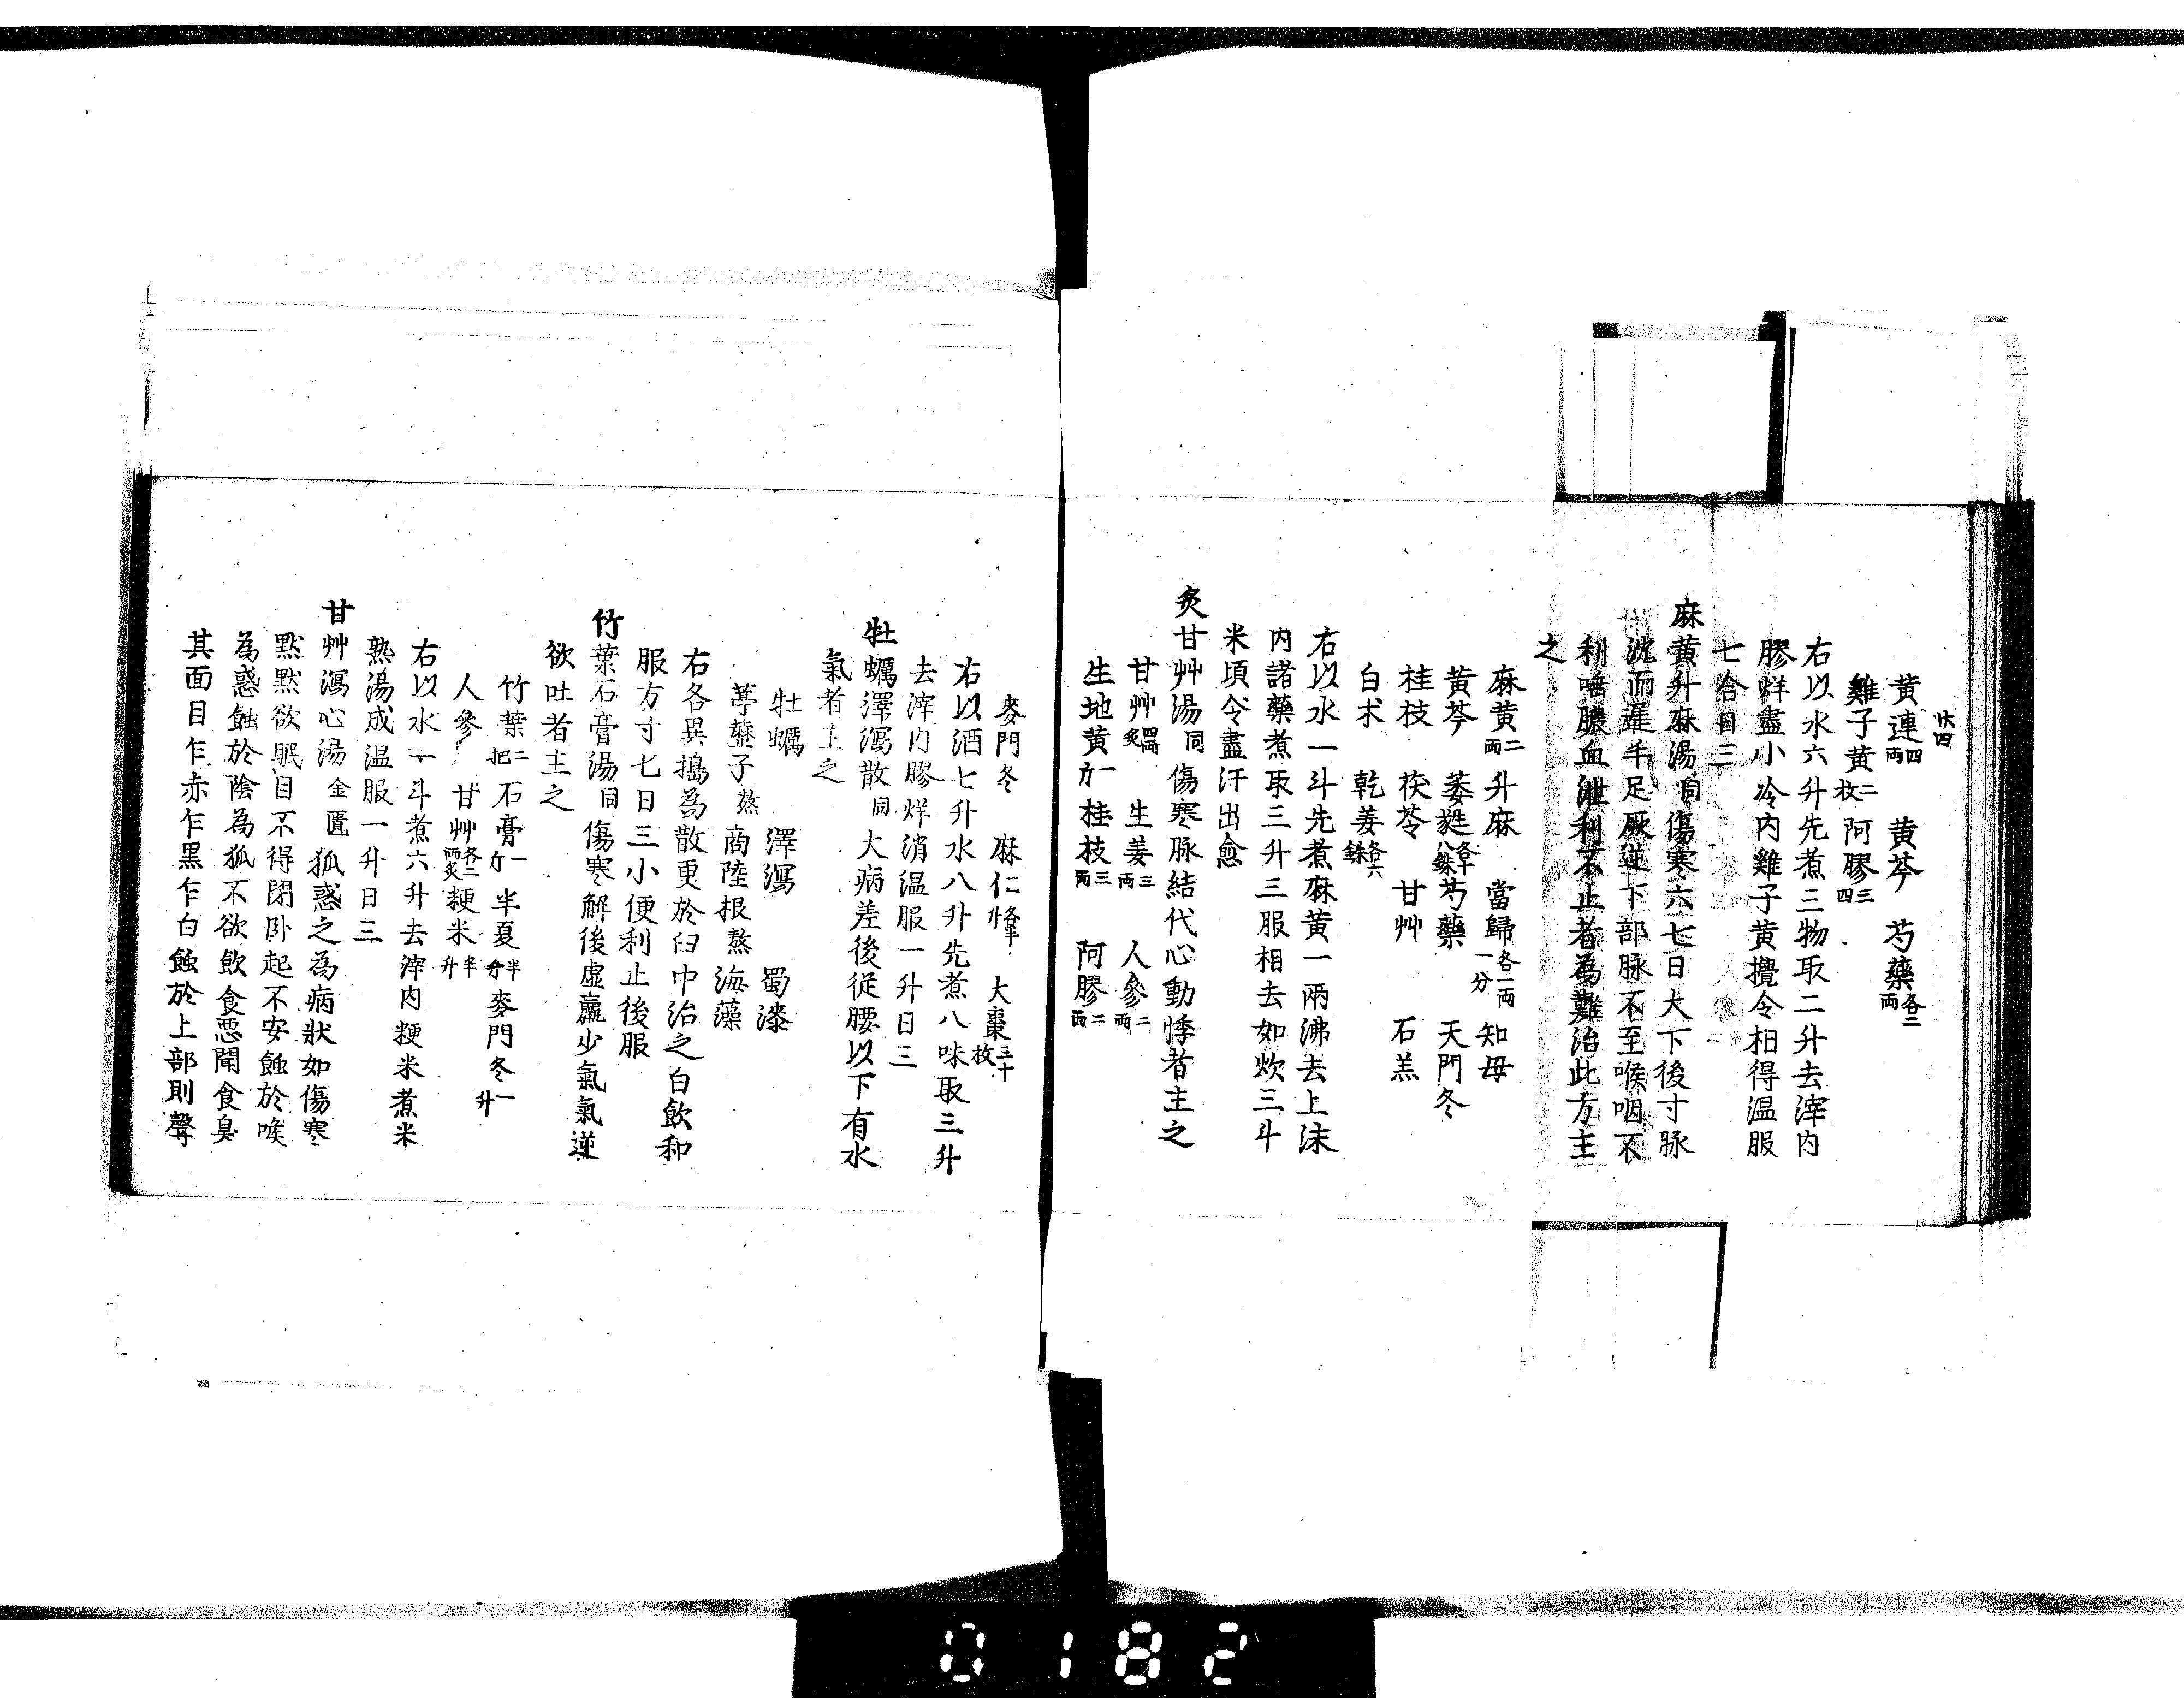 黄連四両 黄芩 芍藥各二両
雞子黄二枚 阿膠三
右以水六升先煮三物取二升去滓内
膠烊盡小冷内雞子黄攪令相得温服
七合日三
麻黄升麻湯同傷寒六七日大下後寸脉
沈而遲手足厥逆下部脉不至喉咽不
利唾膿血泄利不止者為難治此方主
之
麻黄二両 升麻 當歸各一両一分 知母
黄芩 萎蕤各十八銖 芍藥 天門冬
桂枝 茯苓 甘艸 石羔
白朮 乾姜各六銖
右以水一斗先煮麻黄一兩沸去上沫
内諸藥煮取三升三服相去如炊三斗
米頃令盡汗出愈
炙甘艸湯同傷寒脉結代心動悸者主之
甘艸四両炙 生姜三両 人參二両
生地黄一斤 桂枝三両 阿膠二両
麥門冬 麻仁 大棗三十枚
右以酒七升水八升先煮八味取三升
去滓内膠烊消温服一升日三
牡蠣澤瀉散同大病差後従腰以下有水
氣者主之
牡蠣 澤瀉 蜀漆
葶藶子熬 商陸根熬 海藻
右各異搗為散更於臼中治之白飲和
服方寸七日三小便利止後服
竹葉石膏湯同傷寒解後虚羸少氣氣逆
欲吐者主之
竹葉二把 石膏一斤 半夏半升 麥門冬一升
人參 甘艸各二両炙 粳米半升
右以水一斗煮六升去滓内粳米煮米
熟湯成温服一升日三
甘艸瀉心湯金匱狐惑之為病状如傷寒
黙黙欲眠目不得閉卧起不安蝕於喉
為惑蝕於陰為狐不欲飲食悪聞食臭
其面目乍赤乍黒乍白蝕於上部則聲
0182